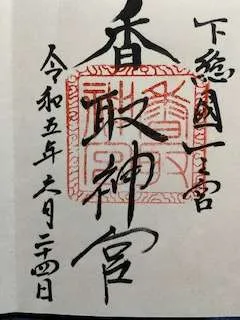 下総國一之宮
香取神宮
令和五年六月二十四日
香取
神宮